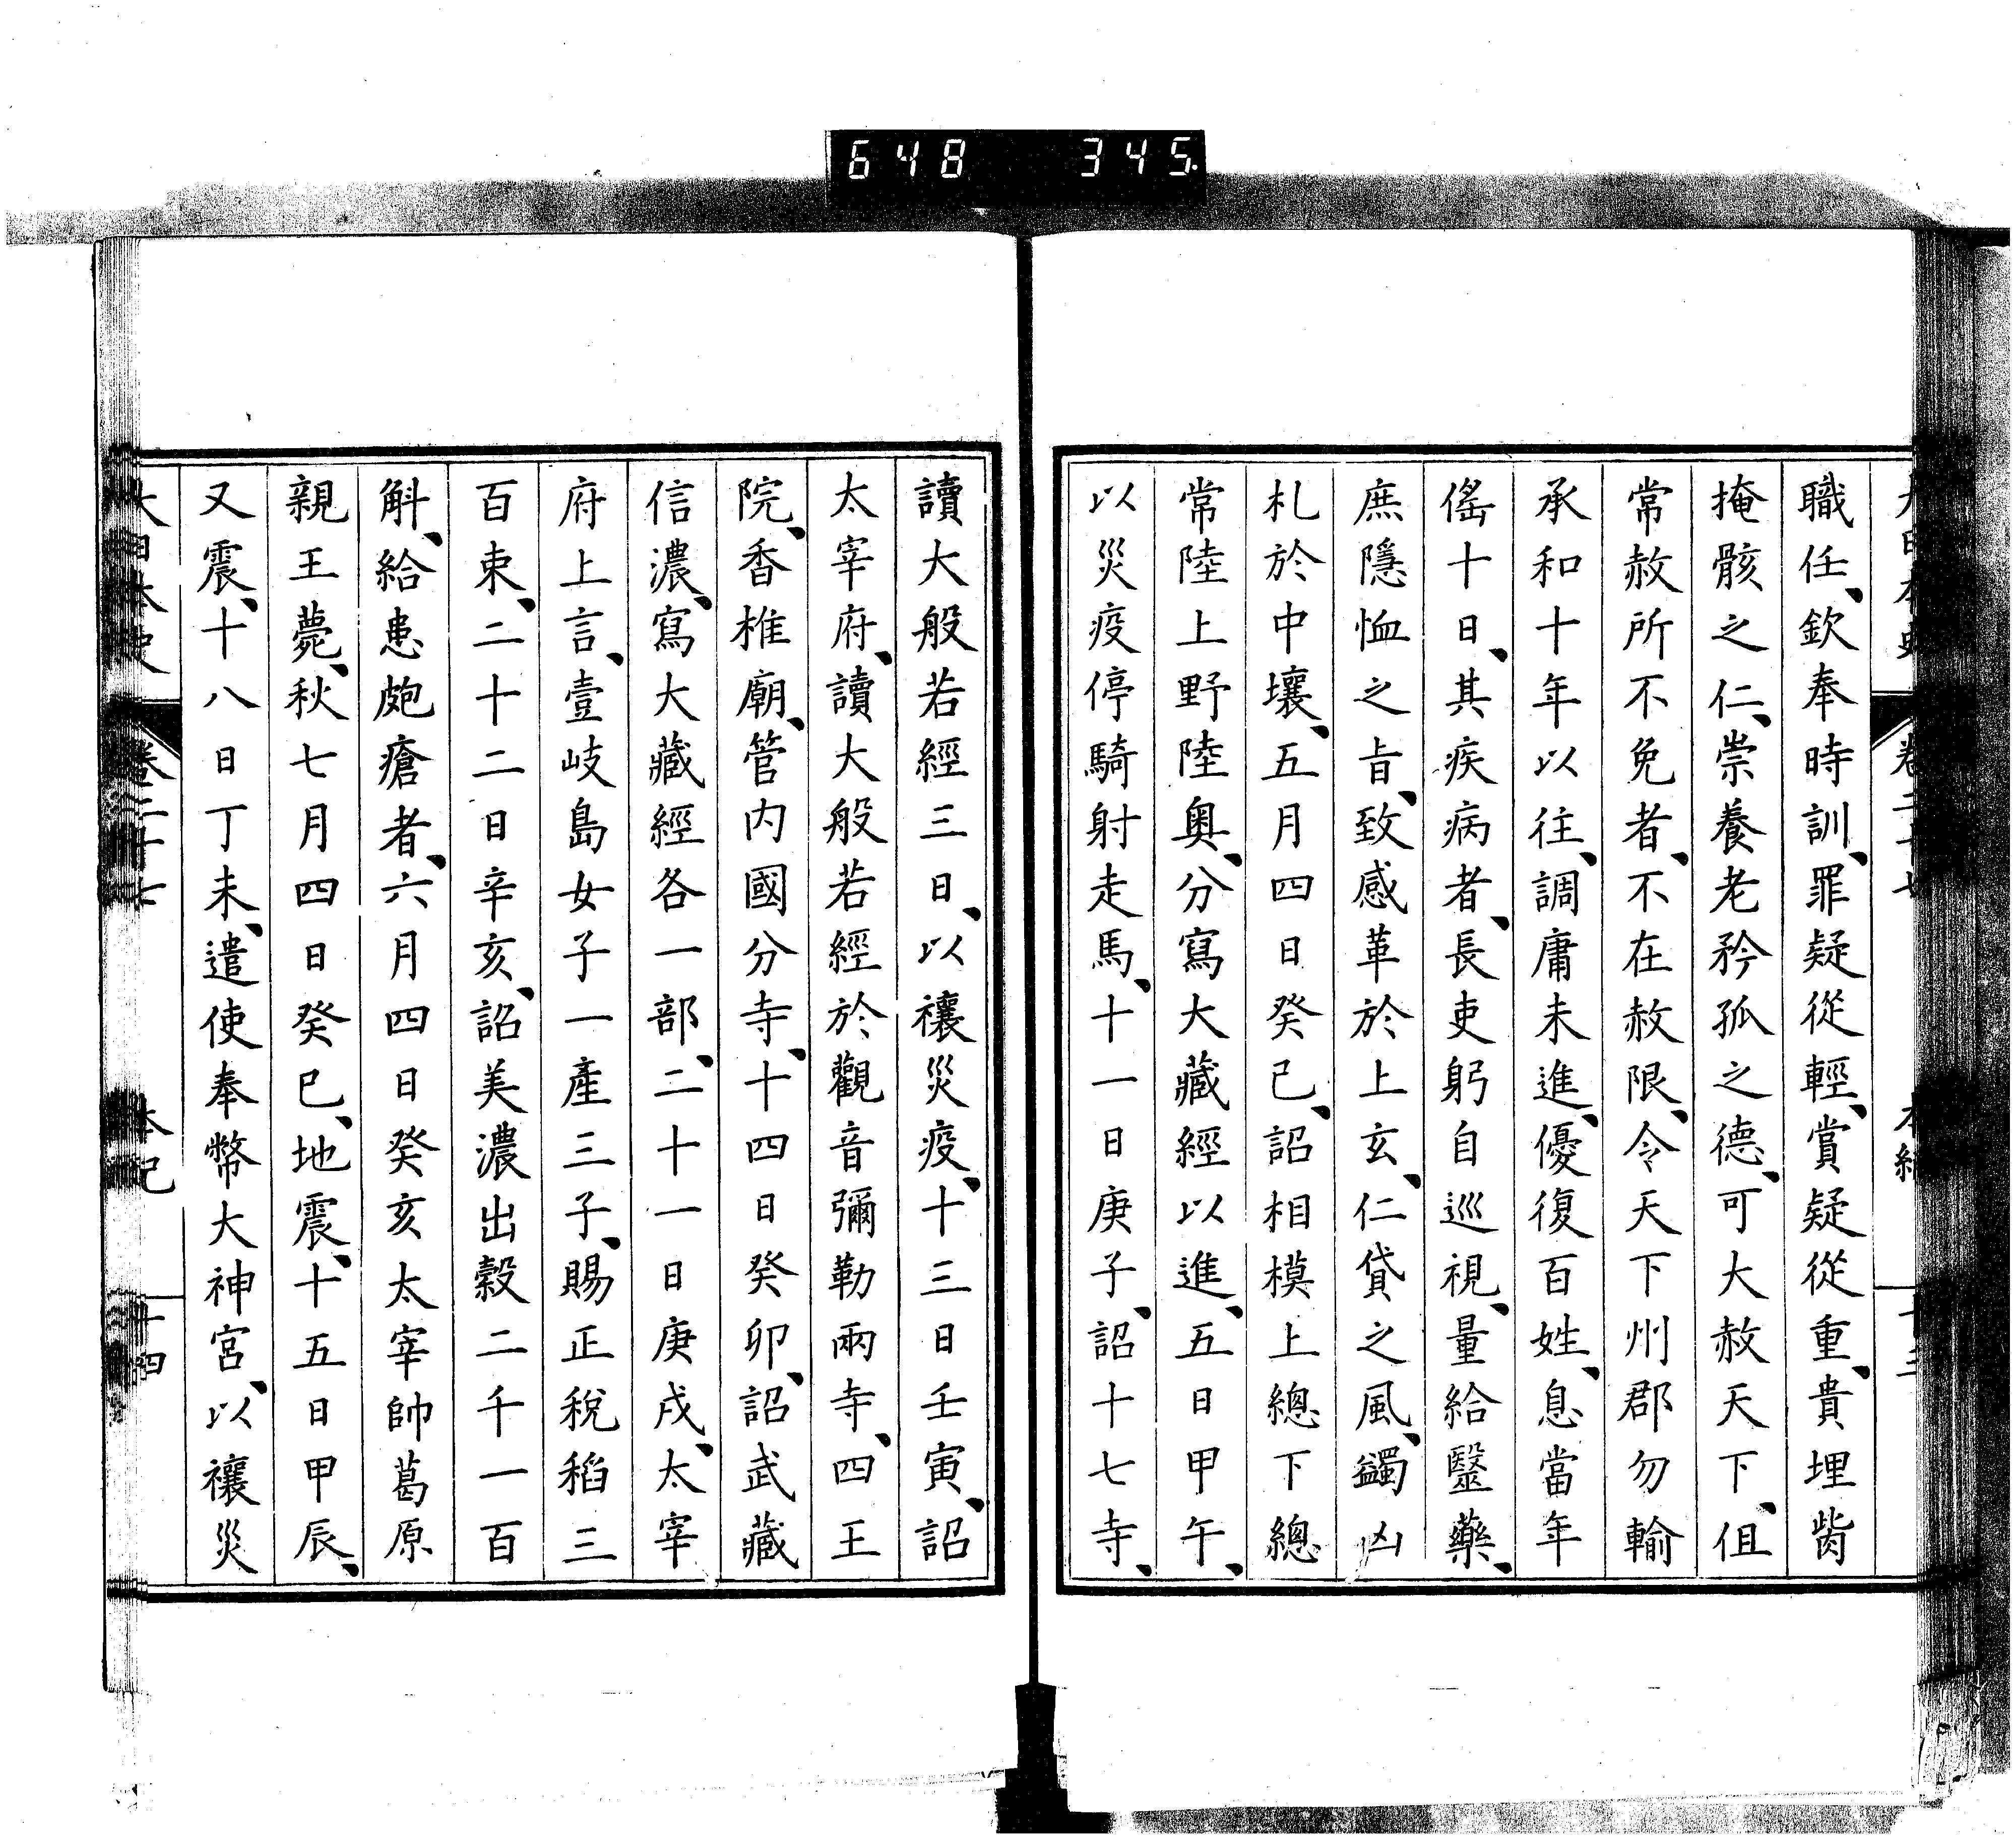 648 345
大日本史 卷二十七 本紀 十三
職任、欽奉時訓、罪疑從輕、賞疑從重、貴埋胔
掩骸之仁、崇養老矜孤之德、可大赦天下、但
常赦所不免者、不在赦限、令天下州郡勿輸
承和十年以往、調庸未進、優復百姓、息當年
傜十日、其疾病者、長吏躬自巡視、量給醫藥、
庶隱恤之旨、致感革於上玄、仁貸之風、蠲凶
札於中壤、五月四日癸巳、詔相模上總下總
常陸上野陸奥、分寫大藏經以進、五日甲午、
以災疫停騎射走馬、十一日庚子、詔十七寺、
讀大般若經三日、以禳災疫、十三日壬寅、詔
太宰府、讀大般若經於觀音彌勒兩寺、四王
院、香椎廟、管内國分寺、十四日癸卯、詔武藏
信濃、寫大藏經各一部、二十一日庚戌、太宰
府上言、壹岐島女子一產三子、賜正稅稻三
百束、二十二日辛亥、詔美濃出穀二千一百
斛、給患皰瘡者、六月四日癸亥太宰帥葛原
親王薨、秋七月四日癸巳、地震、十五日甲辰、
又震、十八日丁未、遣使奉幣大神宮、以禳災
大日本史 卷二十七 本紀 十四